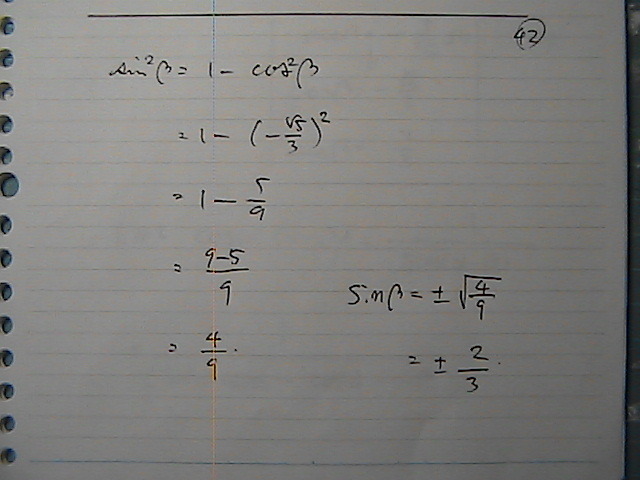 42
sin²β = 1 - cos²β
= 1 - (-√5/3)²
= 1 - 5/9
= 9-5/9
= 4/9.
Sinβ = ± √4/9
= ± 2/3.